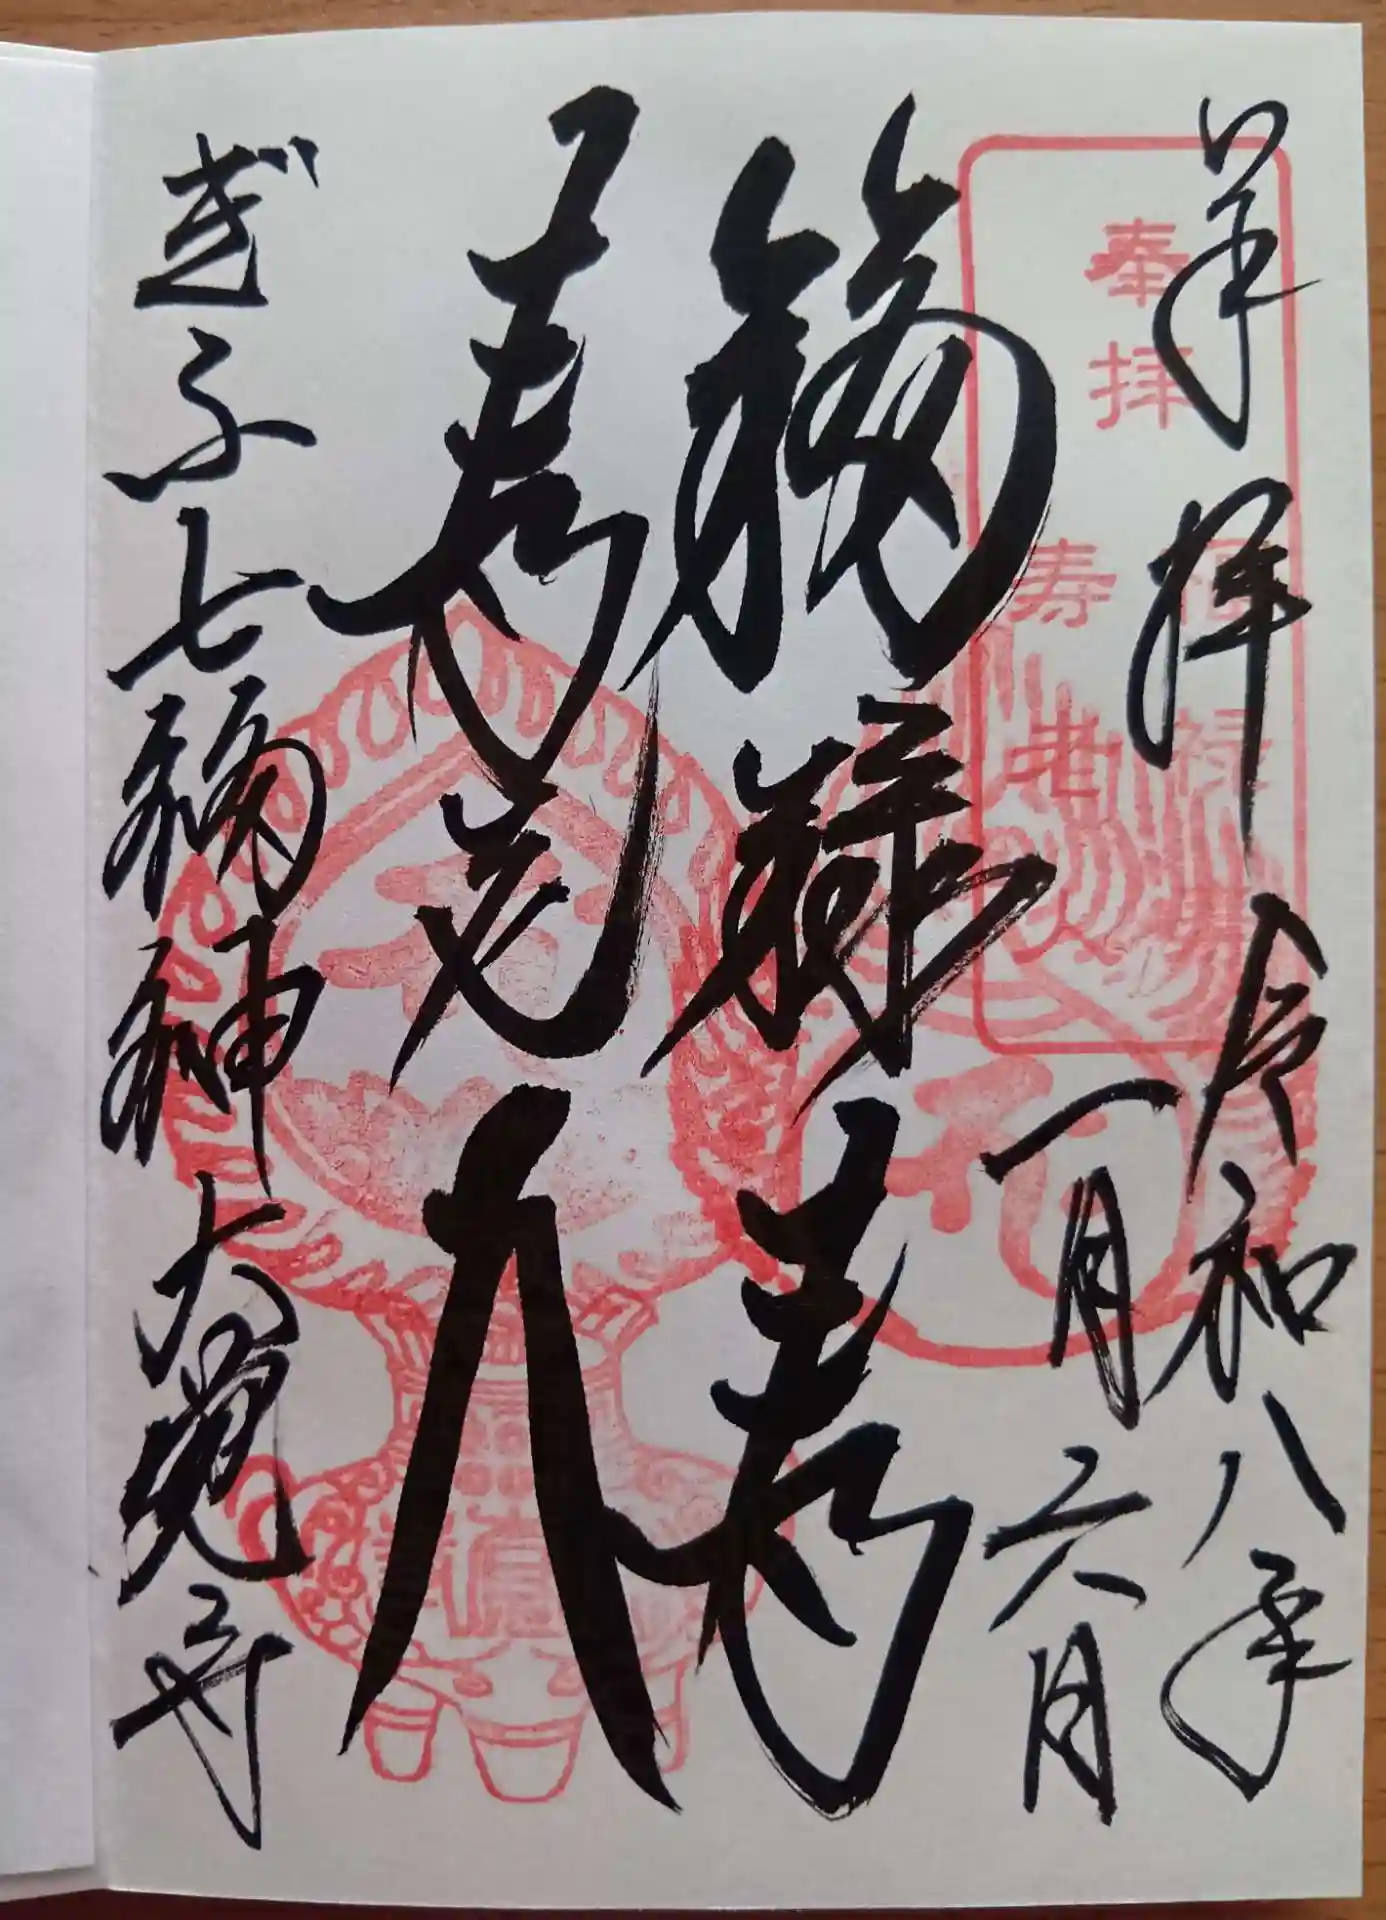 奉拝 令和八年
一月六日
奉拝
福禄寿
寿老人
福禄寿
寿老人
ぎふ七福神 大覚寺